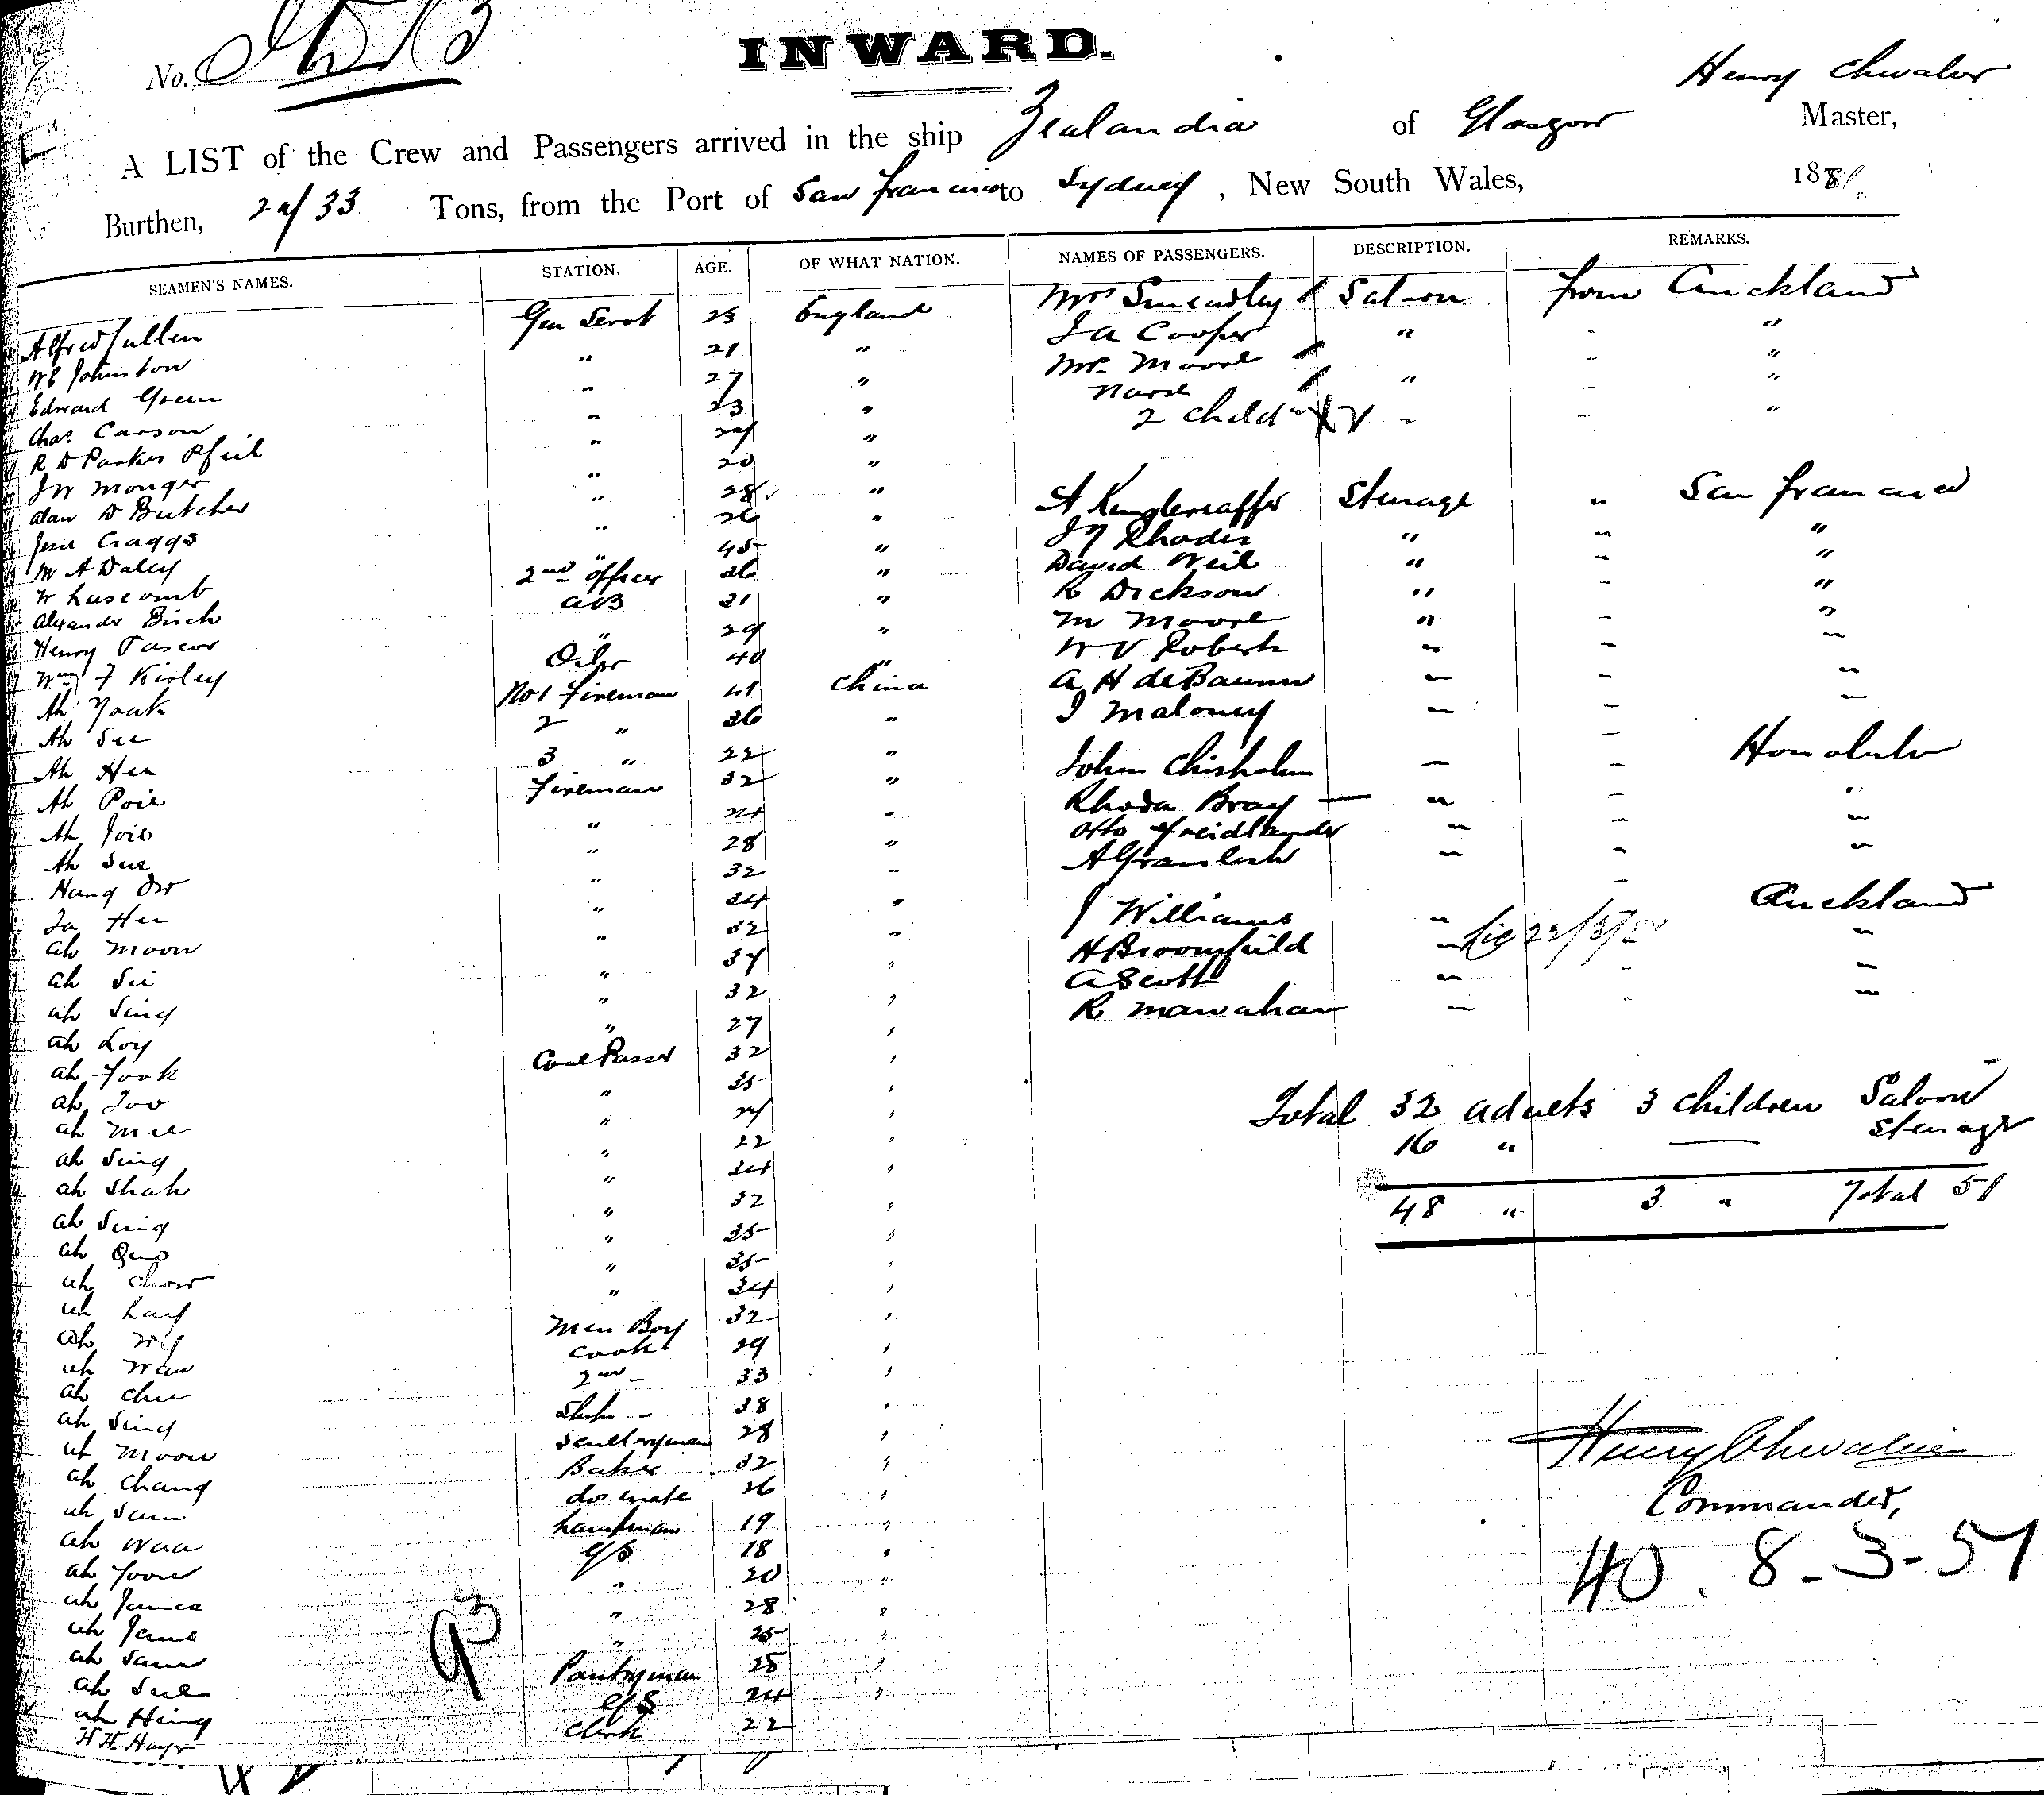 No.
INWARD.
Henry Chevalier
A LIST of the Crew and Passengers arrived in the ship Zealandia of Glasgow Master,
Burthen, 2433 Tons, from the Port of San Francisco to Sydney, New South Wales, 1881.
SEAMEN'S NAMES. STATION. AGE. OF WHAT NATION. NAMES OF PASSENGERS. DESCRIPTION. REMARKS.
Alfred Cullen Gen Servt 25 England Mrs Smeadley Saloon from Auckland
W E Johnston " 21 " J A Cooper " - "
Edward Green " 27 " Mrs Moore - "
Chas Carson " 23 " Nurse " - "
R D Parker Pfeil " 24 " 2 Childn " - "
J W Monger " 20 "
Alan D Butcher " 28 "
Jesse Craggs " 26 " Steerage " San Francisco
M A Daley " 45 " Rhodes " " "
W Luscomb 2nd Officer 36 " David Weil " " "
Alexander Birch AB 31 " R Dickson " - "
Henry Pascoe " 29 " M Moore " - "
Wm F Kirley Oiler 40 " W V Roberts " - "
Ah Youk No 1 Fireman 41 China A H de " - "
Ah See 2 " 36 " J Maloney " - "
Ah Hee 3 " 22 " John Chisholm " - Honolulu
Ah Poie Fireman 32 " Rhoda Bray " - "
Ah Joie " 24 " Otto Freidlander " - "
Ah Sue " 28 " " - "
Hung " 32 "
Ja Hee " 34 " J Williams " Auckland
Ah Moon " 32 " H Broomfield " "
Ah Sii " 34 " A Scott " - "
Ah Sing " 32 " R " - "
Ah Loy " 27 "
Ah Fook Coal Passer 32 "
Ah Foo " 35 "
Ah Mee " 24 " Total 32 adults 3 children Saloon
Ah Sing " 22 " 16 " — Steerage
Ah Shah " 24 "
Ah Sing " 32 " 48 " 3 " Total 51
Ah Quo " 35 "
Ah Chow " 35 "
Ah Lay " 34 "
Ah Mess Boy 32 "
Ah Wan Cook 29 "
Ah Chee 2nd - 33 "
Ah Sing - 38 "
Ah Moon Sculleryman 28 "
Ah Chang Baker 32 "
Ah Sam do mate 26 "
Ah Waa Lampman 19 "
Ah Yoon G/S 18 "
Ah James " 20 "
Ah Jane " 28 "
Ah Sam " 25 "
Ah Sue Pantryman 25 "
Ah Hing G/S 24 "
H H Hays Clerk 22
Henry Chevalier
Commander,
40. 8-3-51
93